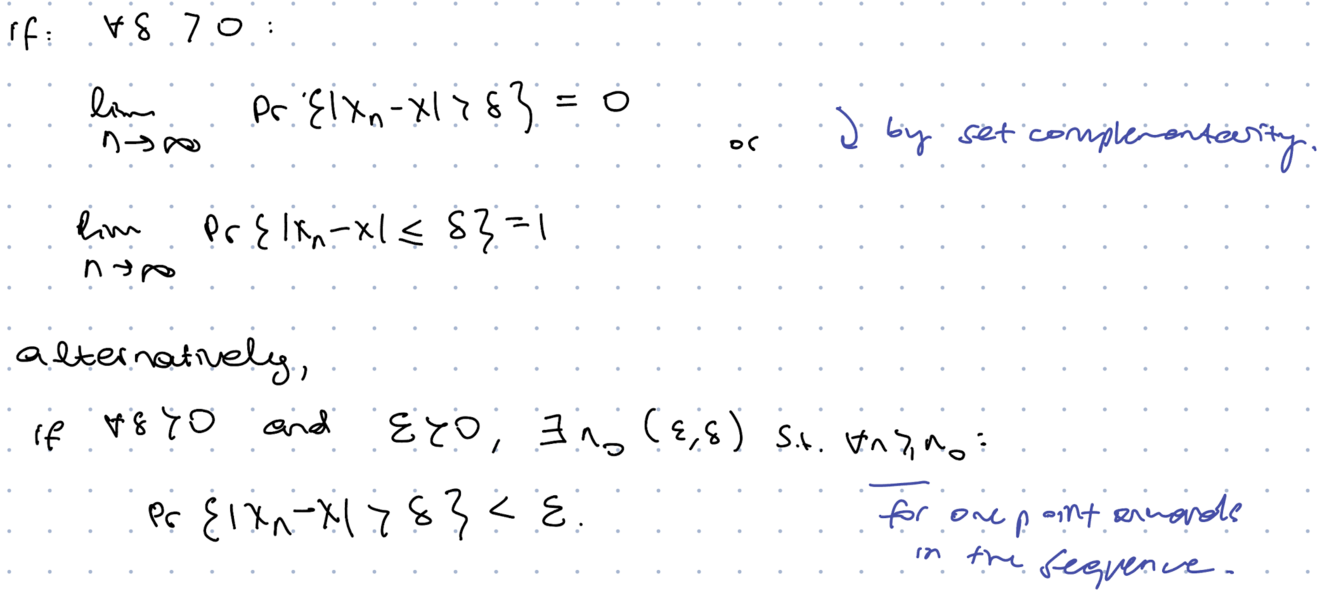 if: ∀δ > 0 :
lim n→∞ Pr {|Xn-X| > δ} = 0
or ↓ by set complementarity.
lim n→∞ Pr {|Xn-X| ≤ δ} = 1
alternatively,
if ∀δ>0 and ε>0, ∃ n₀ (ε,δ) s.t. ∀n ≥ n₀ :
Pr {|Xn-X| > δ} < ε.
for one point onwards
in the sequence.